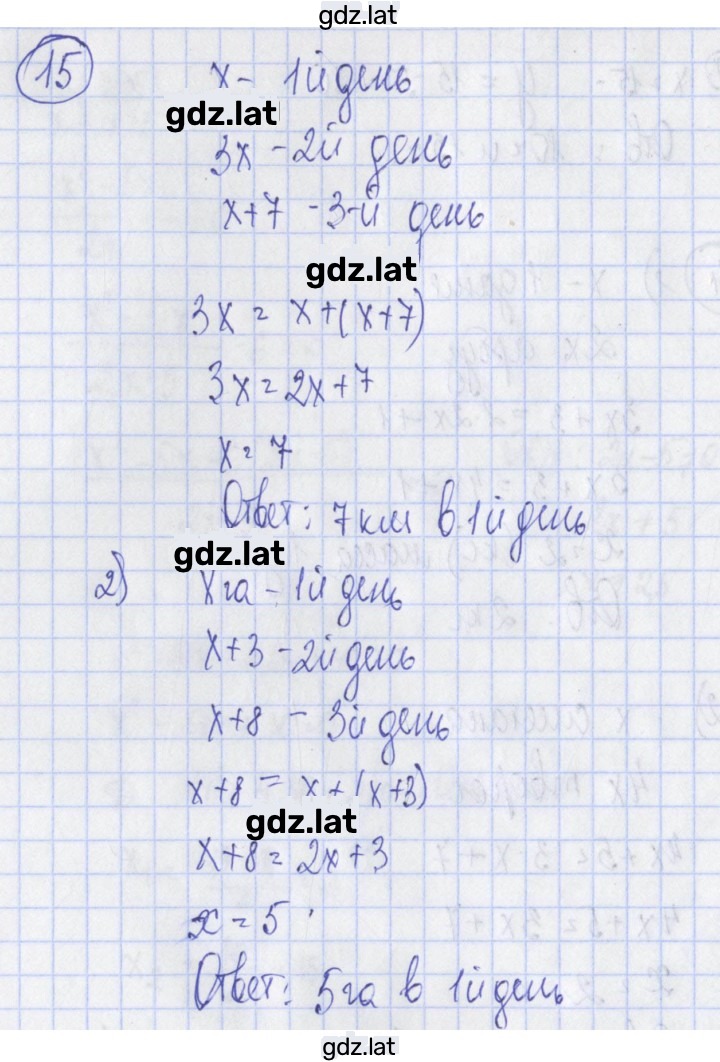 gdz.lat
15
x - 1й день
gdz.lat
3x - 2й день
x+7 - 3-й день
gdz.lat
3x = x+(x+7)
3x = 2x+7
x = 7
Ответ: 7 км в 1й день
gdz.lat
2) x га - 1й день
x+3 - 2й день
x+8 - 3й день
x+8 = x+(x+3)
gdz.lat
x+8 = 2x+3
x = 5
Ответ: 5 га в 1й день
gdz.lat